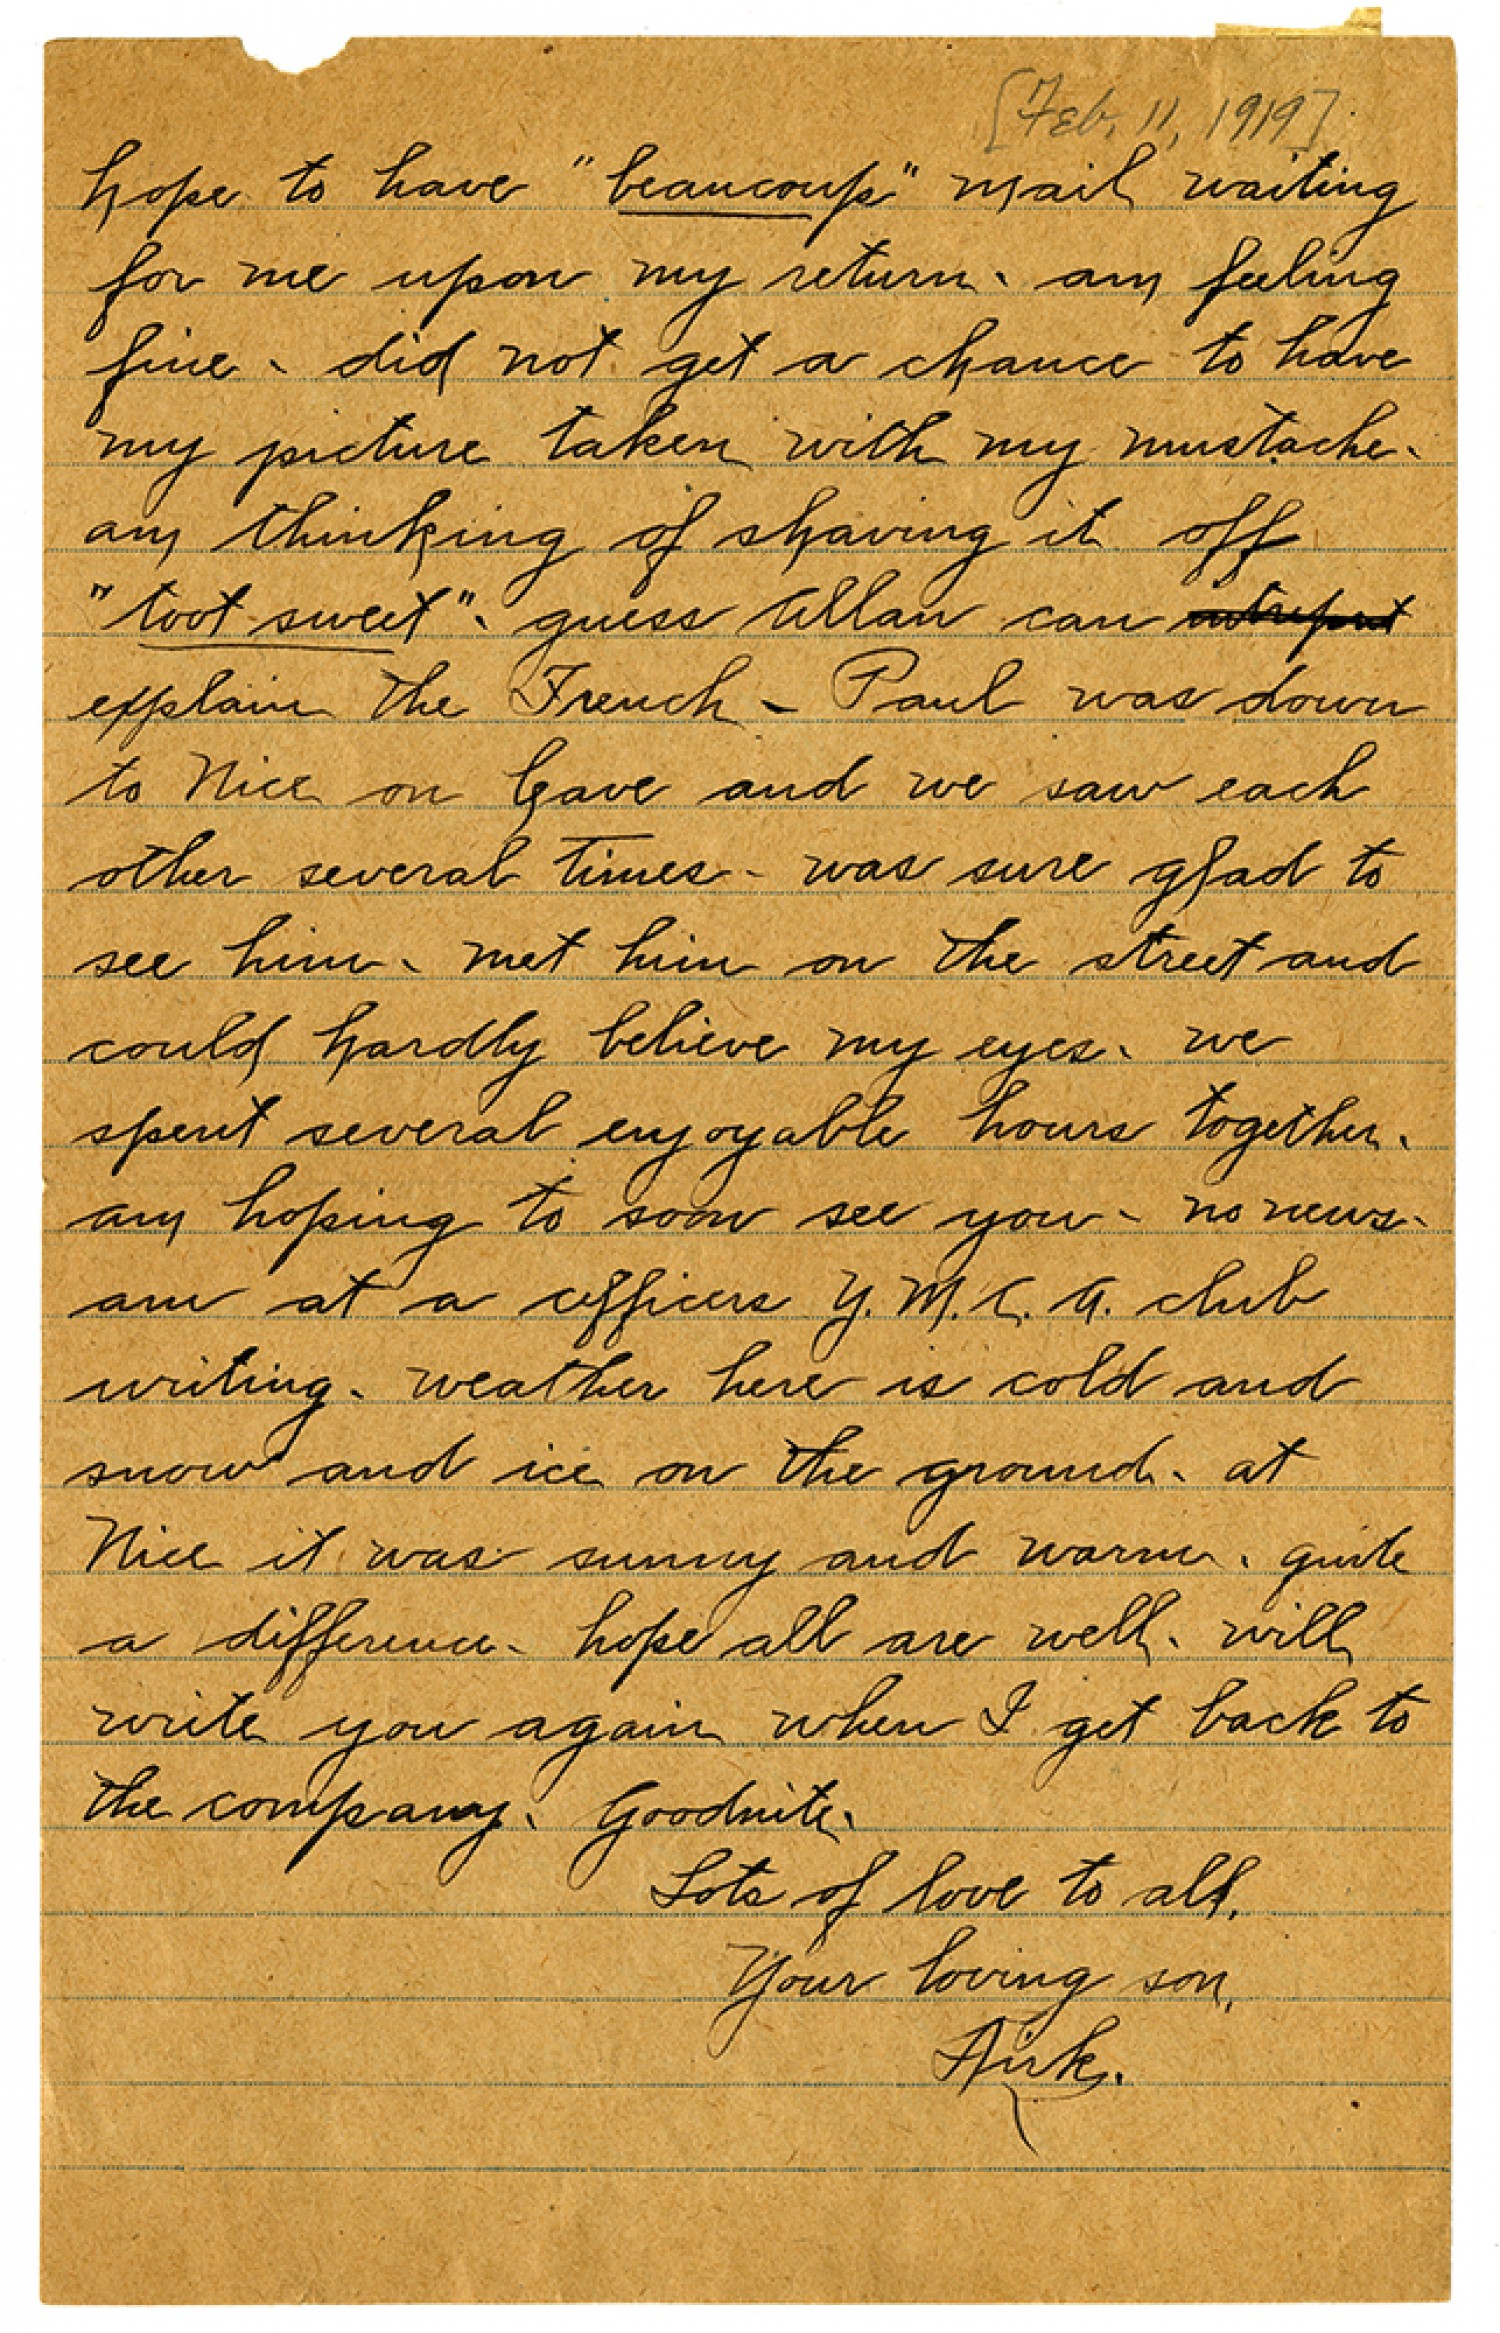 [Feb. 11, 1919]
hope to have "beaucoup" mail waiting
for me upon my return. am feeling
fine. did not get a chance to have
my picture taken with my mustache.
am thinking of shaving it off
"toot sweet". guess Allan can
explain the French - Paul was down
to Nice on leave and we saw each
other several times. was sure glad to
see him. met him on the street and
could hardly believe my eyes. we
spent several enjoyable hours together.
am hoping to soon see you - no news.
am at a officers Y.M.C.A. club
writing. weather here is cold and
snow and ice on the ground. at
Nice it was sunny and warm. quite
a difference. hope all are well. will
write you again when I get back to
the company. Goodnite.
Lots of love to all,
Your loving son,